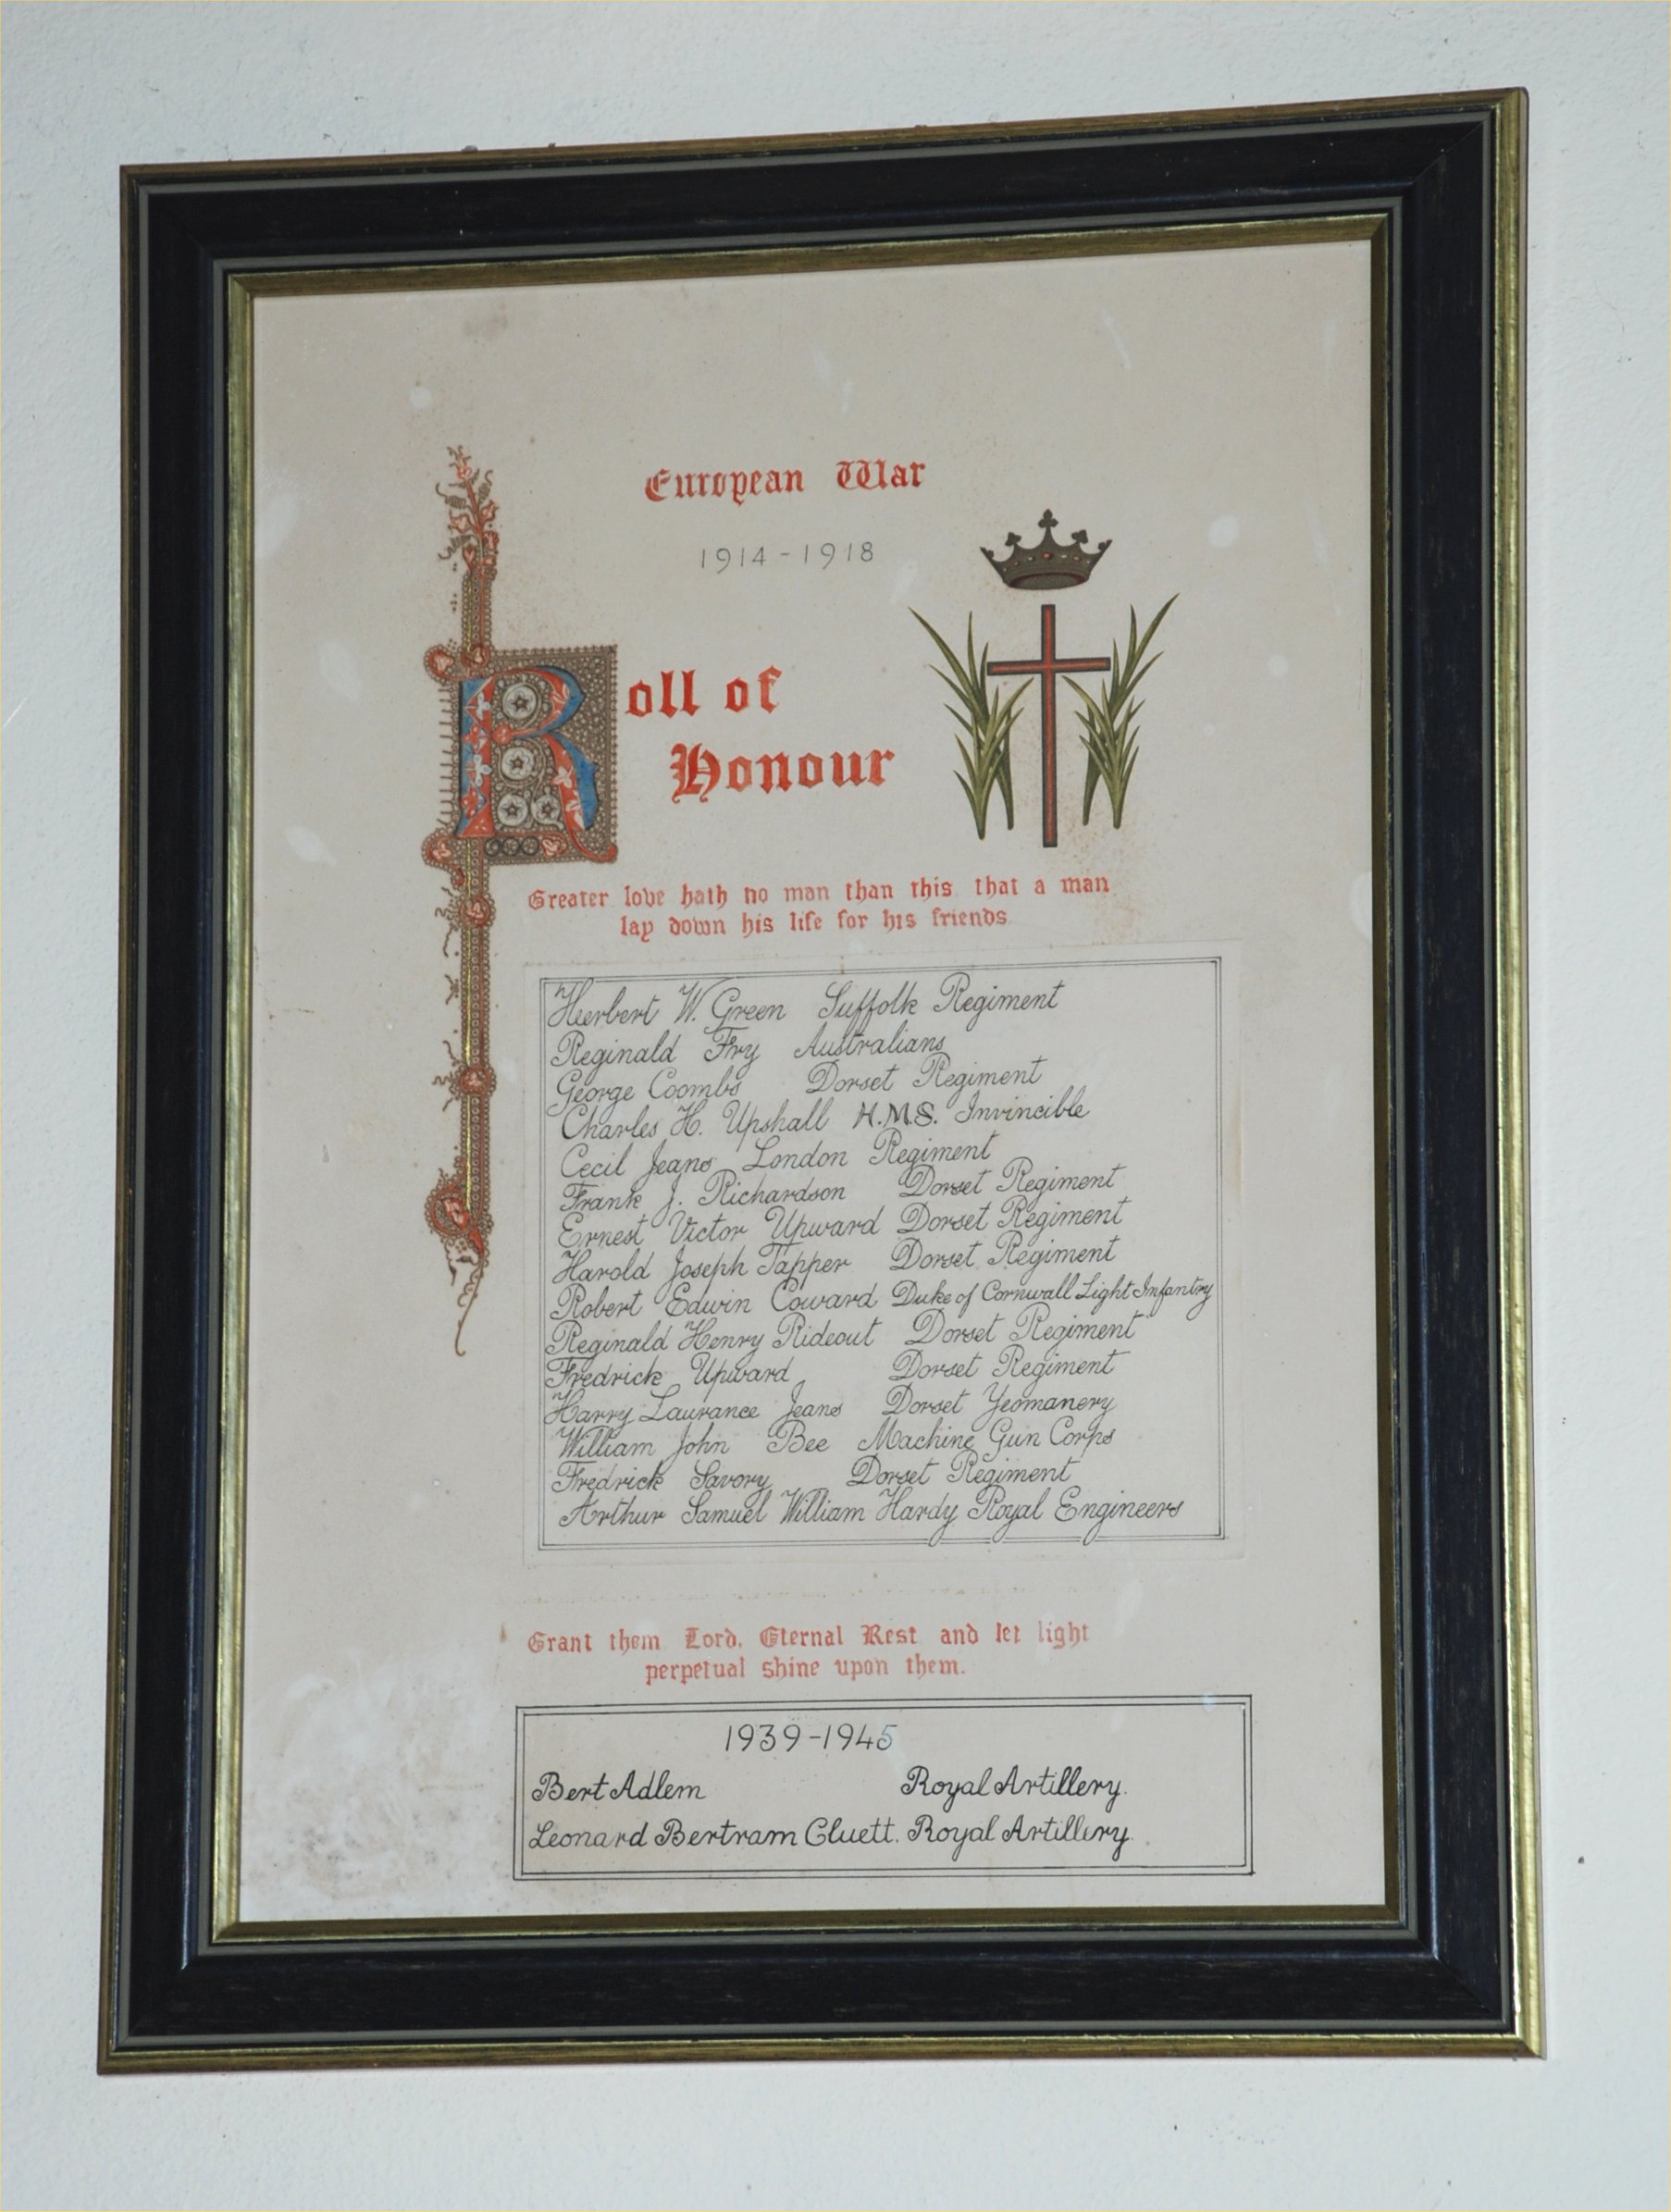 European War
1914-1918
Roll of
Honour
Greater love hath no man than this that a man
lay down his life for his friends
Herbert W. Green Suffolk Regiment
Reginald Fry Australians
George Coombs Dorset Regiment
Charles H. Upshall H.M.S. Invincible
Cecil Jeans London Regiment
Frank J. Richardson Dorset Regiment
Ernest Victor Upward Dorset Regiment
Harold Joseph Tapper Dorset Regiment
Robert Edwin Coward Duke of Cornwall Light Infantry
Reginald Henry Rideout Dorset Regiment
Fredrick Upward Dorset Regiment
Harry Laurance Jeans Dorset Yeomanery
William John Bee Machine Gun Corps
Fredrick Savory Dorset Regiment
Arthur Samuel William Hardy Royal Engineers
Grant them Lord, Eternal Rest and let light
perpetual shine upon them.
1939-1945
Bert Adlem Royal Artillery.
Leonard Bertram Cluett. Royal Artillery.